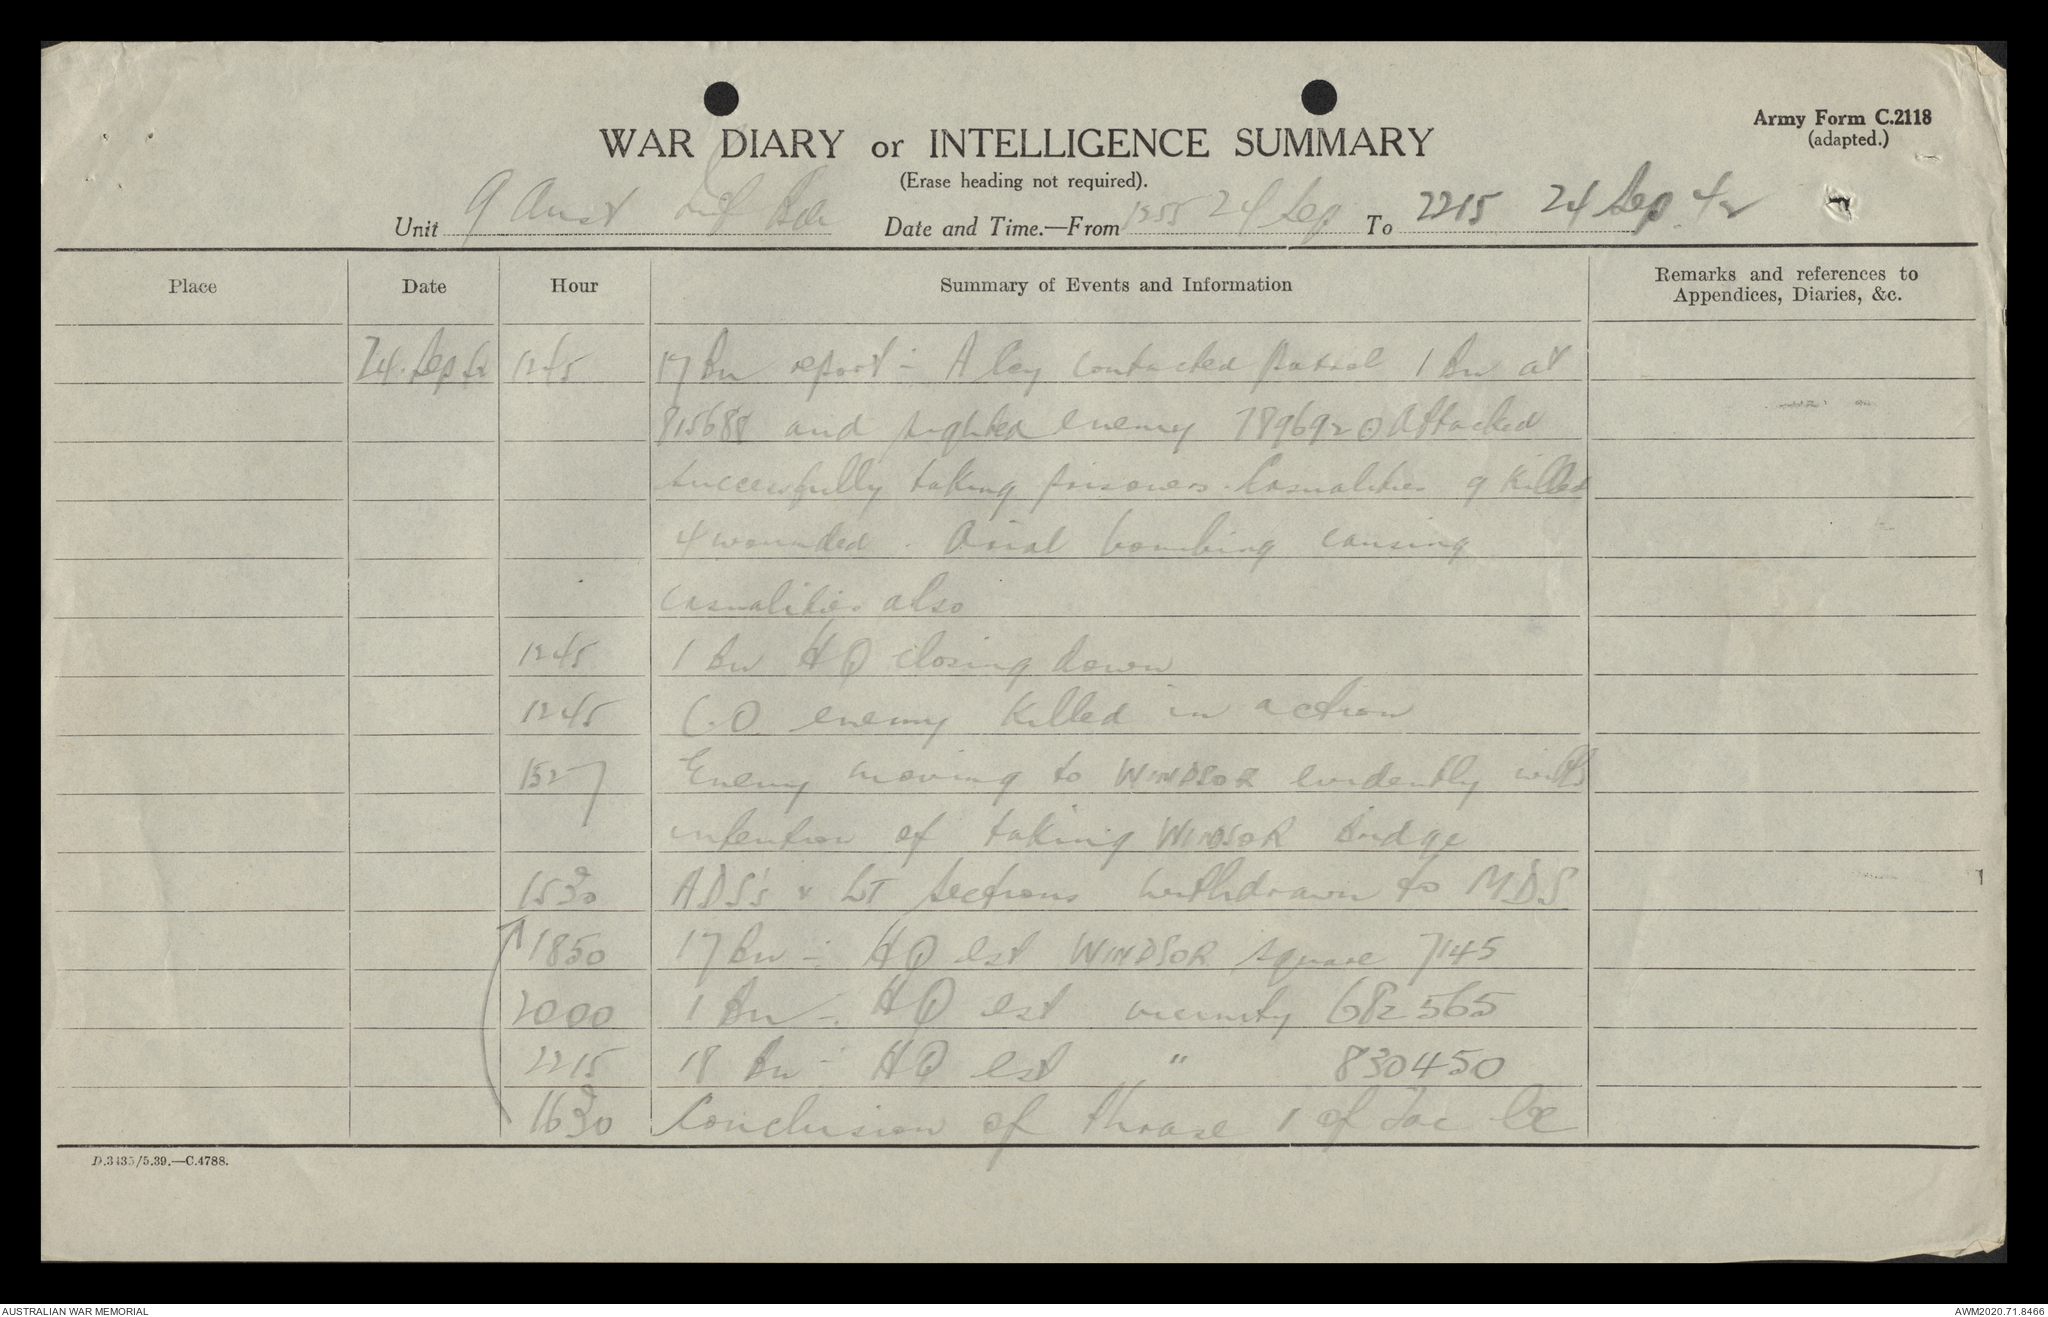 Army Form C.2118
(adapted.)
WAR DIARY or INTELLIGENCE SUMMARY
(Erase heading not required).
Unit 9 Aust Inf Bde Date and Time.—From 1255 24 Sep To 2215 24 Sep 42
Place Date Hour Summary of Events and Information Remarks and references to Appendices, Diaries, &c.
24 Sep 42 1245 17 Bn report - A Coy contacted patrol 1 Bn at
815688 and sighted enemy 789692 Attacked
successfully taking prisoners. Casualities 9 killed
4 wounded. Arial bombing causing
casualities also
1245 1 Bn HQ closing down
1245 C.O. enemy killed in action
1527 Enemy moving to WINDSOR evidently with
intention of taking WINDSOR Bridge
1530 ADS's & LT Sections withdrawn to MDS
1850 17 Bn - HQ est WINDSOR square 7145
2000 1 Bn - HQ est vicinity 682565
2215 18 Bn - HQ est " 830450
1630 Conclusion of Phrase 1 of Tac Ex
D.3435/5.39.—C.4788.
AUSTRALIAN WAR MEMORIAL AWM2020.71.8466